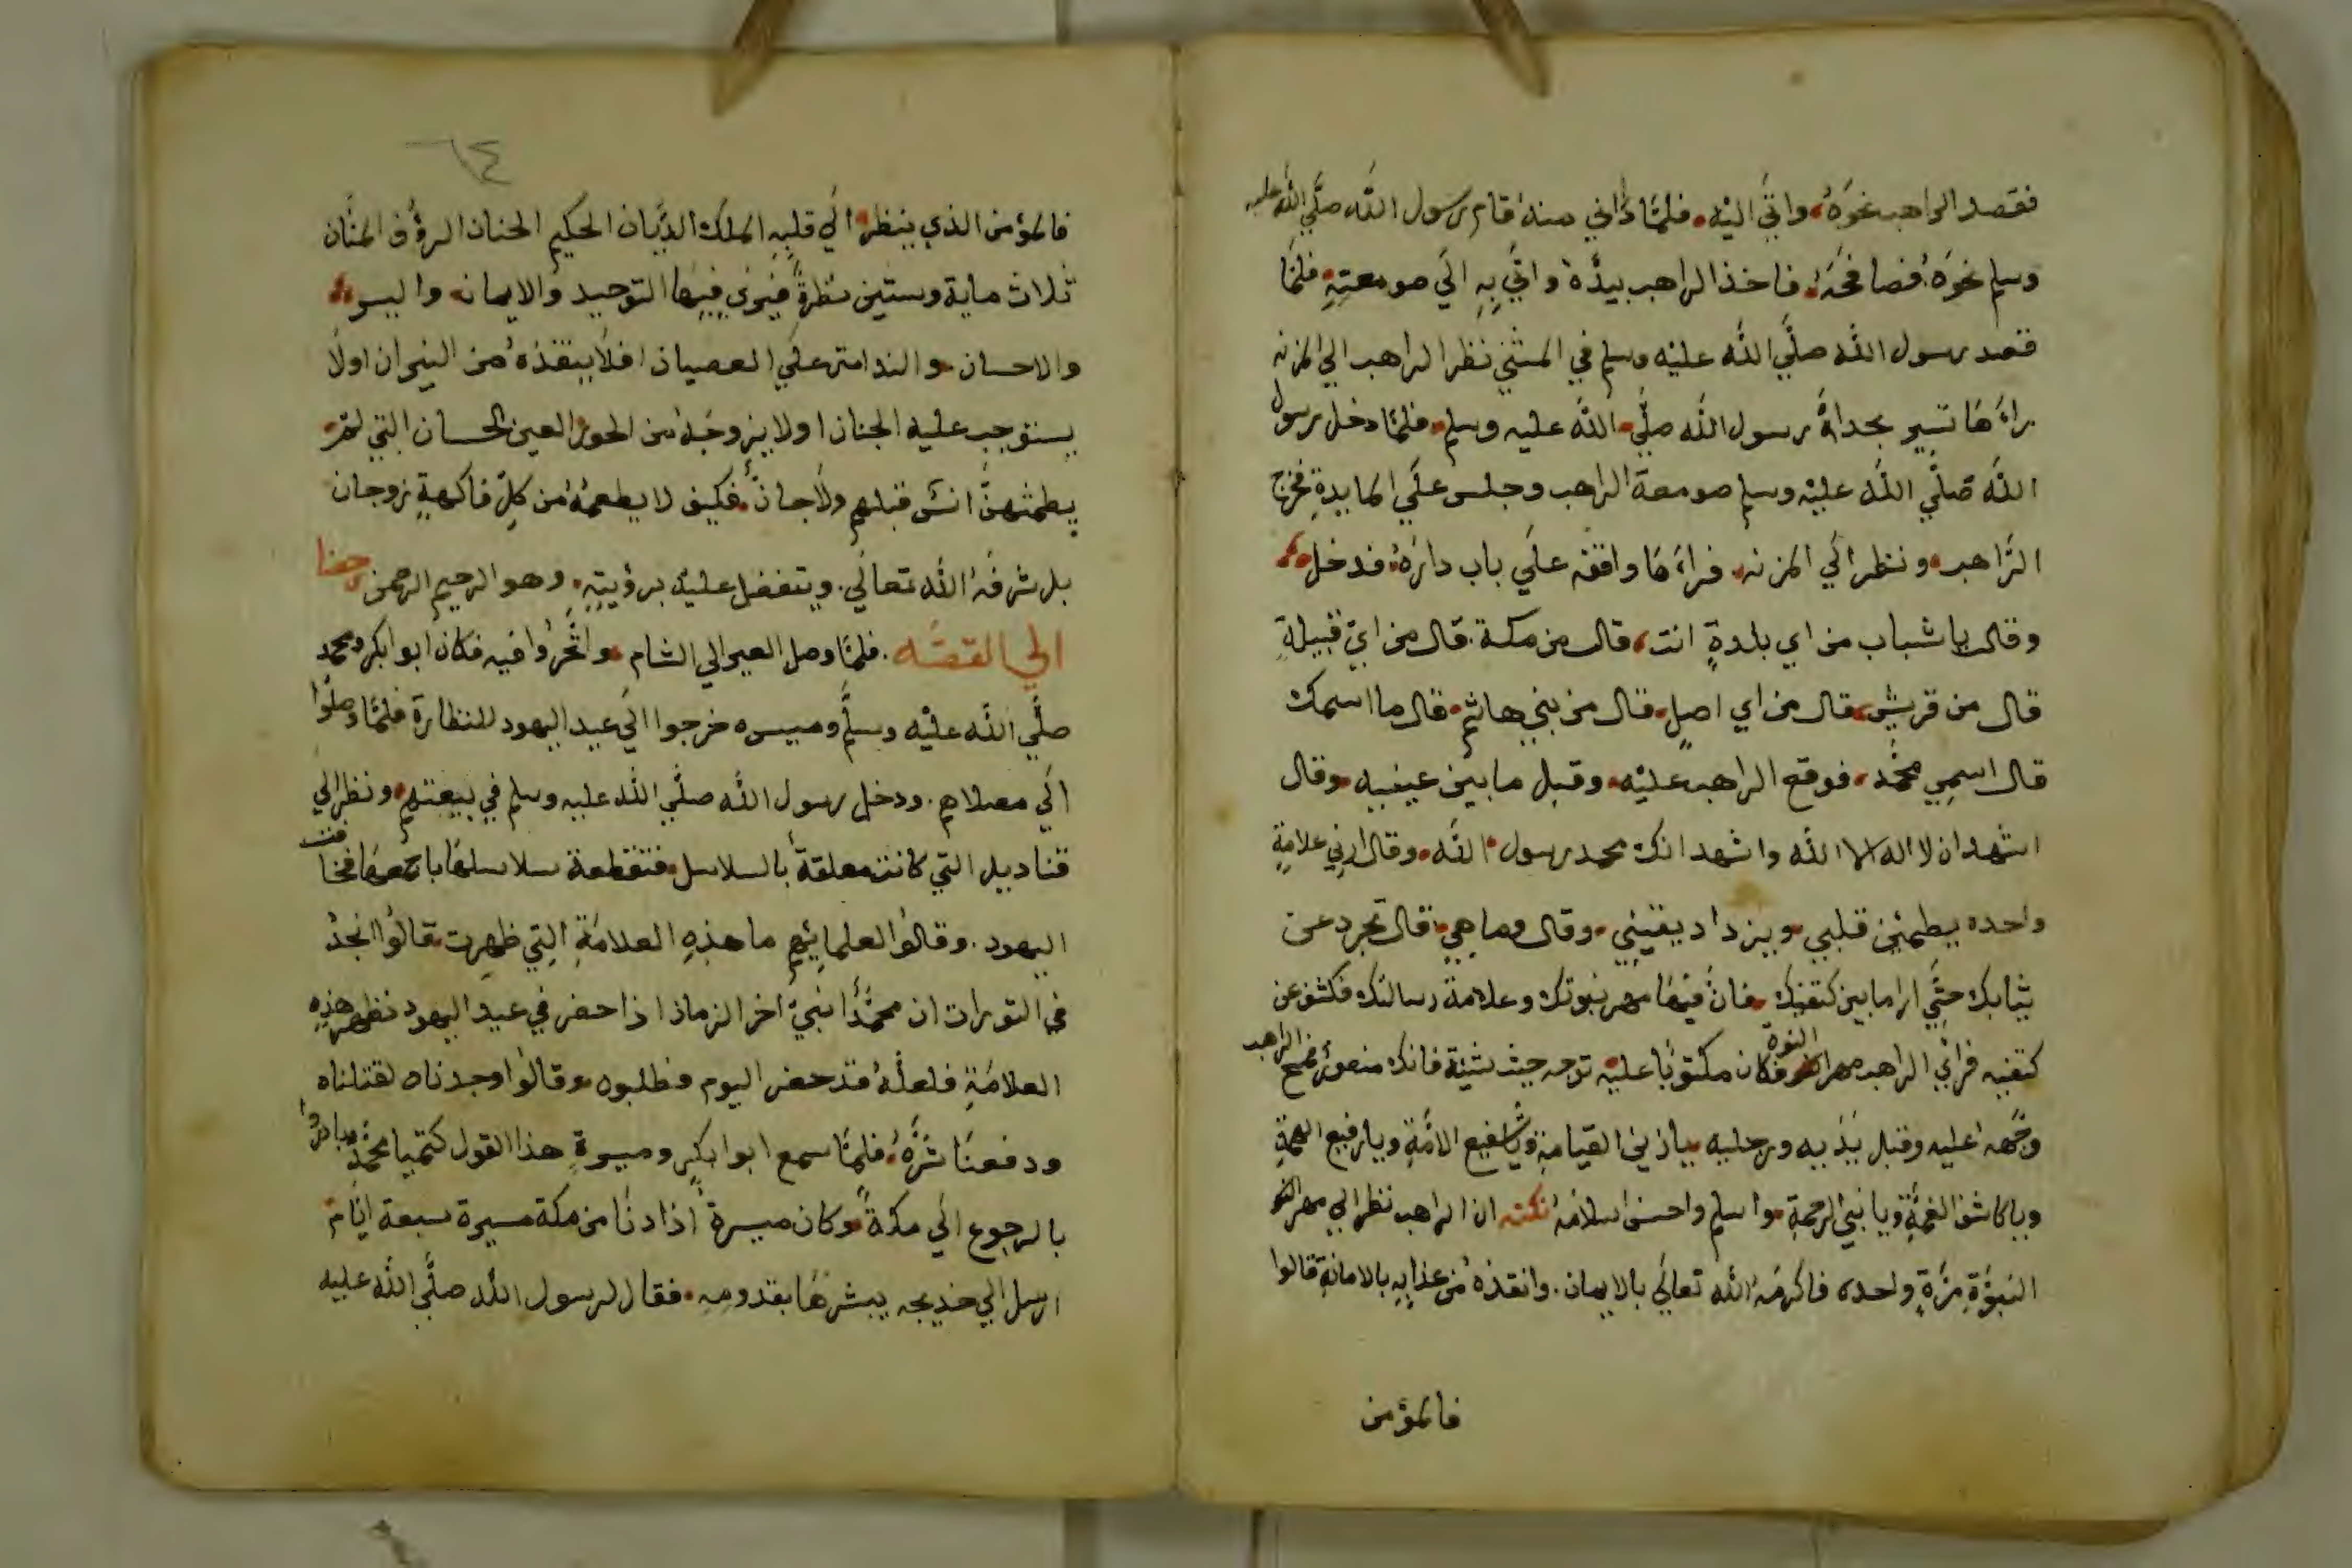 فقصد الراهب نحوه واتى اليه فلما دانى منه قام رسول الله صلى الله عليه
وسلم نحوه فصافحه فاخذ الراهب بيده واتى به الى صومعته فلما
قصد رسول الله صلى الله عليه وسلم في المشي نظر الراهب الي المزنه
براءها تسير بحداة رسول الله صلى الله عليه وسلم فلما دخل رسول
الله صلى الله عليه وسلم صومعة الراهب وجلس على المايدة فخرج
الراهب ونظر الى المزنه فراءها واقفه على باب داره فدخل
وقال يا شباب من اي بلدة انت قال من مكة قال من اي قبيلة
قال من قريش قال من اي اصل قال من بني هاشم قال ما اسمك
قال اسمي محمد فوقع الراهب عليه وقبل ما بين عينيه وقال
اشهد ان لا اله الا الله واشهد انك محمد رسول الله وقال ارني علامة
واحده يطمئين قلبي ويزداد يقيني وقال وما هي قال تجرد عن
ثيابك حتى ارا ما بين كتفيك فان فيها مهر نبوتك وعلامة رسالتك فكشف عن
كتفيه فرائي الراهب مهر النبوة فكان مكتوبا عليه توجه حيث شئية فانك منصور فمسح الراهب
وجهه عليه وقبل يديه ورجليه يازين القيامة ويا شفيع الامة ويا رفيع الهمة
ويا كاشف الغمة ويا نبي الرحمة واسلم واحسن اسلامه نكته ان الراهب نظر الي مهر النبو
النبوة مرة واحده فاكرمه الله تعالى بالايمان وانقذه من عذابه بالامانة قالوا
فالمؤمن
٦٤
فالمؤمن الذي ينظر الي قلبه الملك الديان الحكيم الحنان الرؤف المنان
ثلاث ماية وستين نظرة فيرى فيها التوحيد والايمان والبر
والاحسان والندامة على العصيان افلا ينقذه من النيران اولا
يستوجب عليه الجنان اولا يزوجه من الحور العين الحسان التي لم
يطمثهن انس قبلهم ولا جان فكيف لا يطعمه من كل فاكهة زوجان
بل شرفه الله تعالى ويتفضل عليه برؤيته وهو الرحيم الرحمن رجعنا
الي القصه فلما وصل العير الي الشام واتجروا فيه فكان ابوا بكر ومحمد
صلى الله عليه وسلم وميسره خرجوا الى عيد اليهود للنظارة فلما وصلوا
الى مصلاهم ودخل رسول الله صلى الله عليه وسلم في بيعتهم ونظر الي
قناديل التي كانت معلقة بالسلاسل فتقطعة سلاسلها باجمعها فخافت
اليهود وقالوا لعلمايئهم ما هذه العلامة التي ظهرت قالوا نجد
في التورات ان محمدا نبي اخر الزمان اذا حضر في عيد اليهود تظهر هذه
العلامة فلعله قد حضر اليوم فطلبوه وقالوا وجدناه لقتلناه
ودفعنا شره فلما سمع ابوا بكر وميسرة هذا القول كتميا محمد وبادروا
بالرجوع الى مكة وكان ميسرة اذا دنا من مكة مسيرة سبعة ايام
ارسل الي خديجه يبشرها بقدومه فقال لرسول الله صلى الله عليه